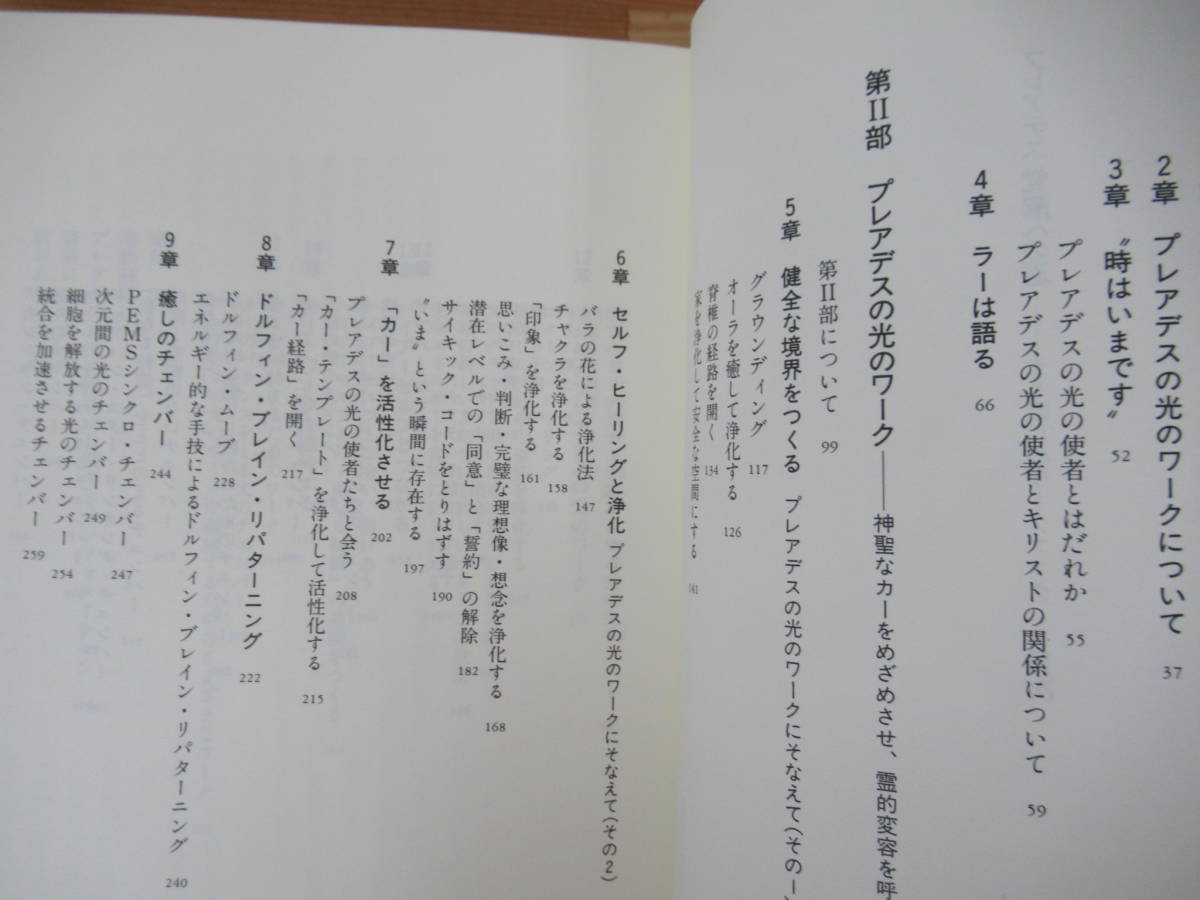 2章 プレアデスの光のワークについて 37
3章 〝時はいまです〟 52
プレアデスの光の使者とはだれか 55
プレアデスの光の使者とキリストの関係について 59
4章 ラーは語る 66
第II部 プレアデスの光のワーク——神聖なカーをめざめさせ、霊的変容を呼
第II部について 99
5章 健全な境界をつくる プレアデスの光のワークにそなえて(その一)
グラウンディング 117
オーラを癒して浄化する 126
脊椎の経路を開く 134
家を浄化して安全な空間にする 141
6章 セルフ・ヒーリングと浄化 プレアデスの光のワークにそなえて(その2)
バラの花による浄化法 147
チャクラを浄化する 158
「印象」を浄化する 161
思いこみ・判断・完璧な理想像・想念を浄化する 168
潜在レベルでの「同意」と「誓約」の解除 182
サイキック・コードをとりはずす 190
〝いま〟という瞬間に存在する 197
7章 「カー」を活性化させる 202
プレアデスの光の使者たちと会う 208
「カー・テンプレート」を浄化して活性化する 215
「カー経路」を開く 217
8章 ドルフィン・ブレイン・リパターニング 222
ドルフィン・ムーブ 228
エネルギー的な手技によるドルフィン・ブレイン・リパターニング 240
9章 癒しのチェンバー 244
PEMSシンクロ・チェンバー 247
次元間の光のチェンバー 249
細胞を解放する光のチェンバー 254
統合を加速させるチェンバー 259